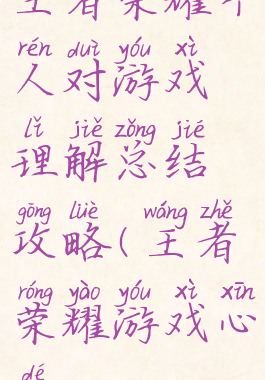 王者荣耀个
rén duì yóu xì
人对游戏
lǐ jiě zǒng jié
理解总结
gōng lüè wáng zhě
攻略(王者
róng yào yóu xì xīn
荣耀游戏心
dé